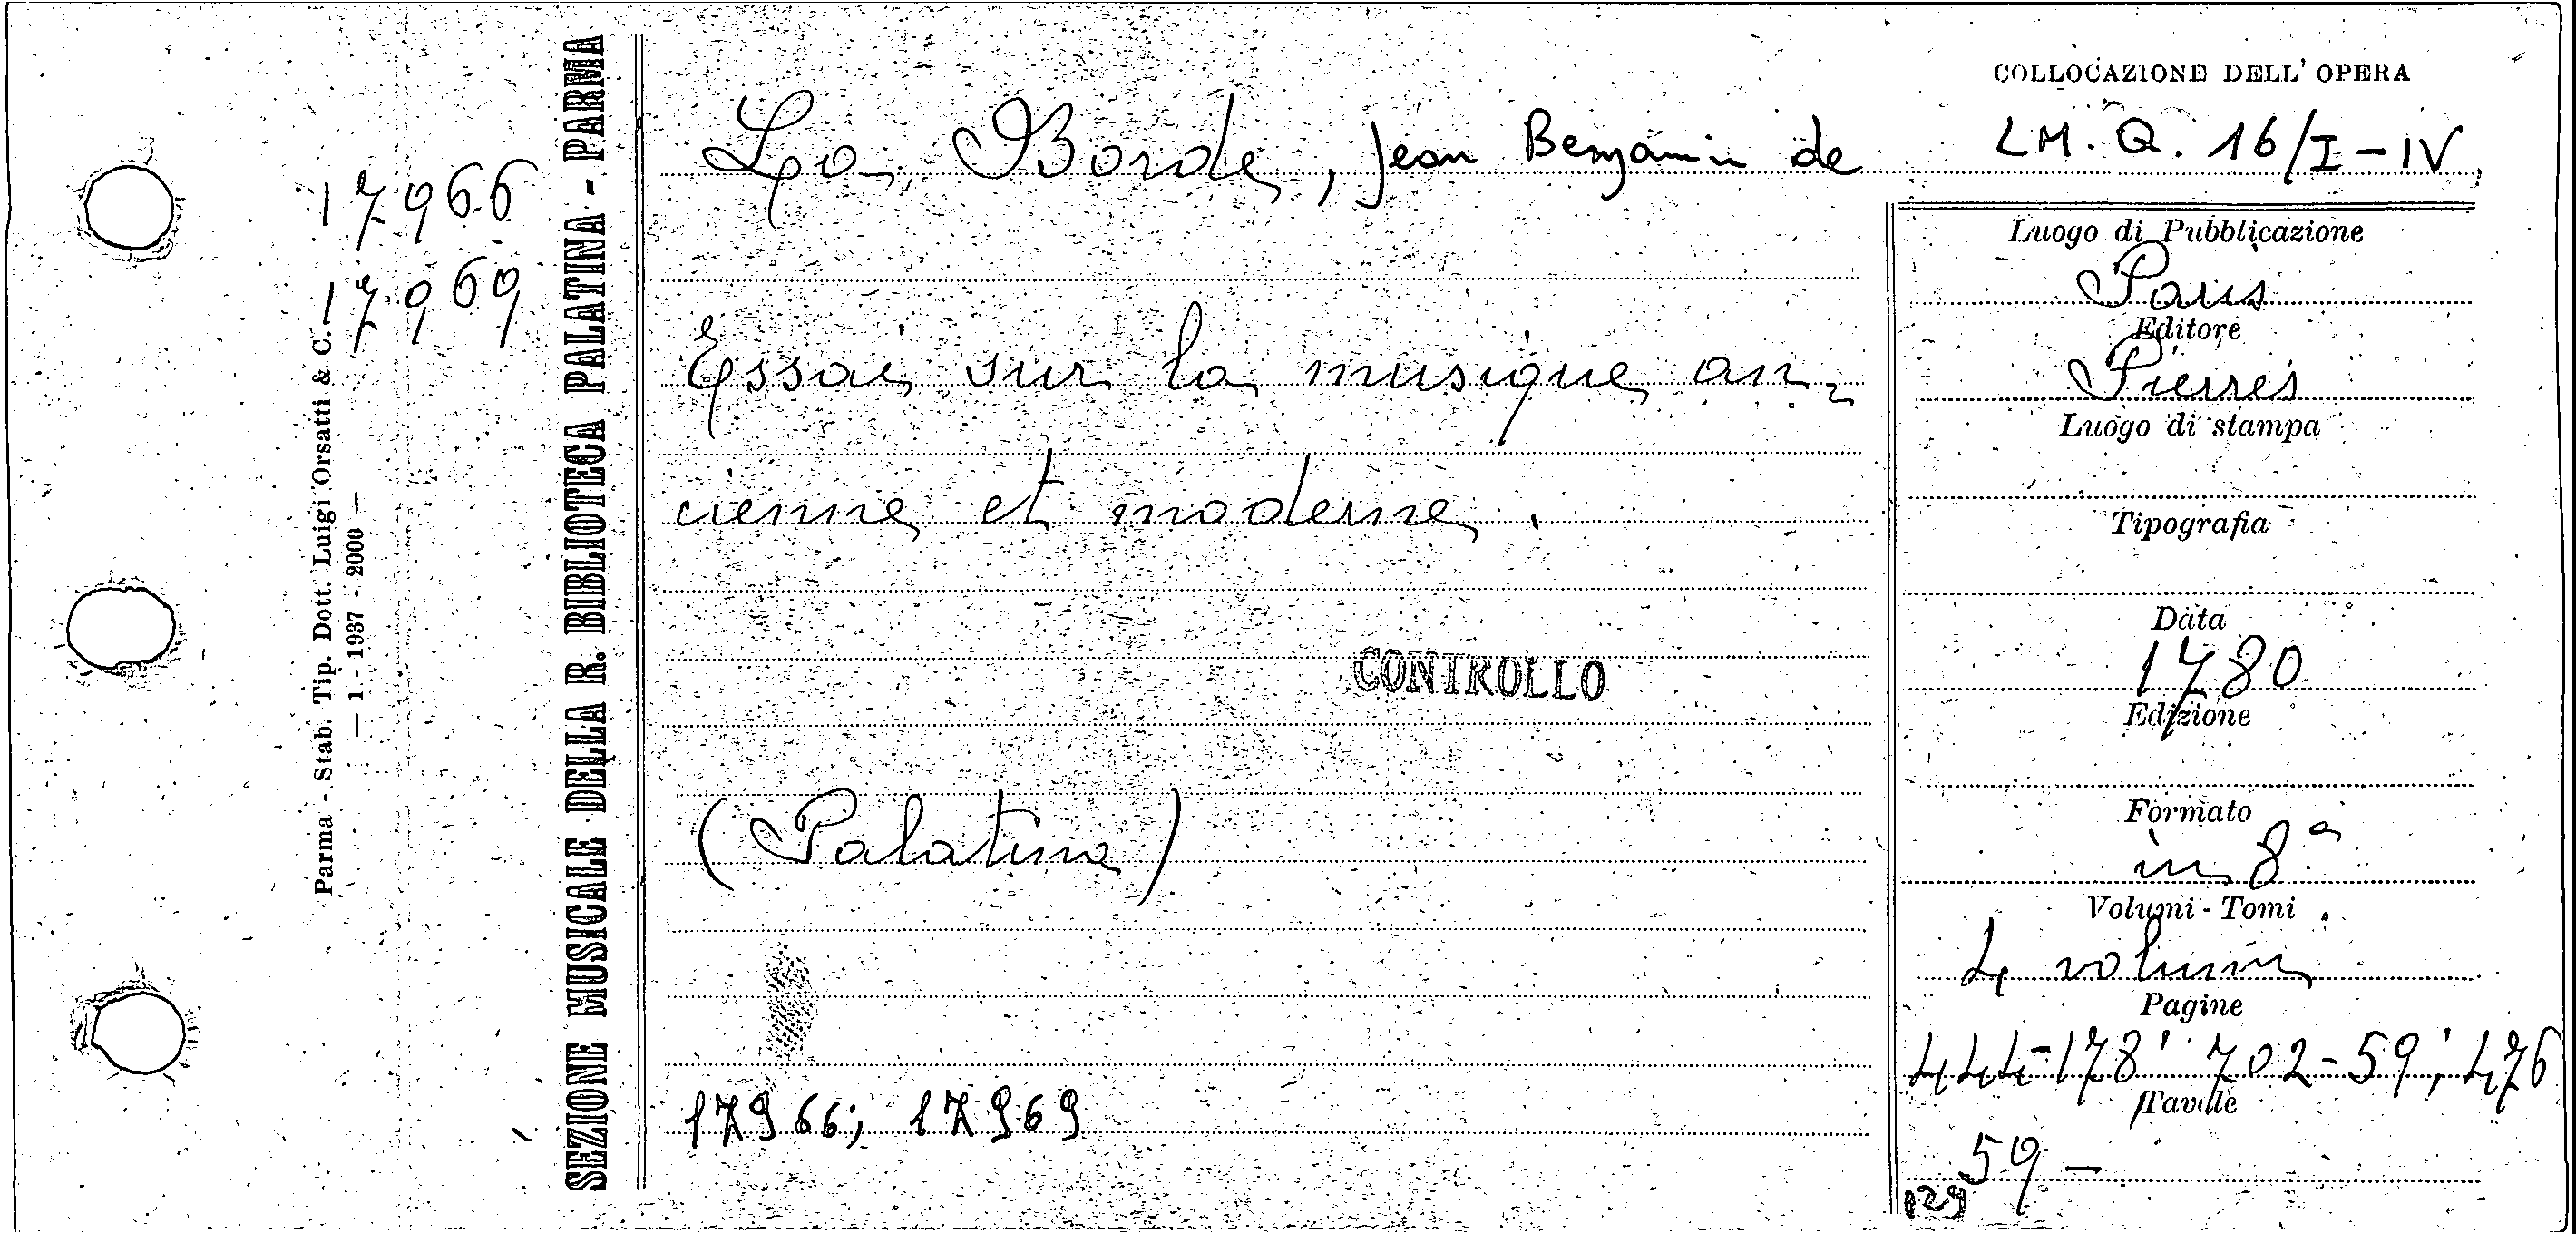 17966
17969
Parma - Stab. Tip. Dott. Luigi Orsatti & C.
— 1 - 1937 - 2000 —
SEZIONE MUSICALE DELLA R. BIBLIOTECA PALATINA - PARMA
La Borde, Jean Benjamin de
Essai sur la musique an-
cienne et moderne.
CONTROLLO
(Palatina)
17966; 17969
COLLOCAZIONE DELL' OPERA
LM. Q. 16/I-IV
Luogo di Pubblicazione
Paris
Editore
Pierres
Luogo di stampa
Tipografia
Data
1780
Edizione
Formato
in 8°
Volumi - Tomi
4 volumi
Pagine
444-178; 702-59; 476
Tavole
59 -
129